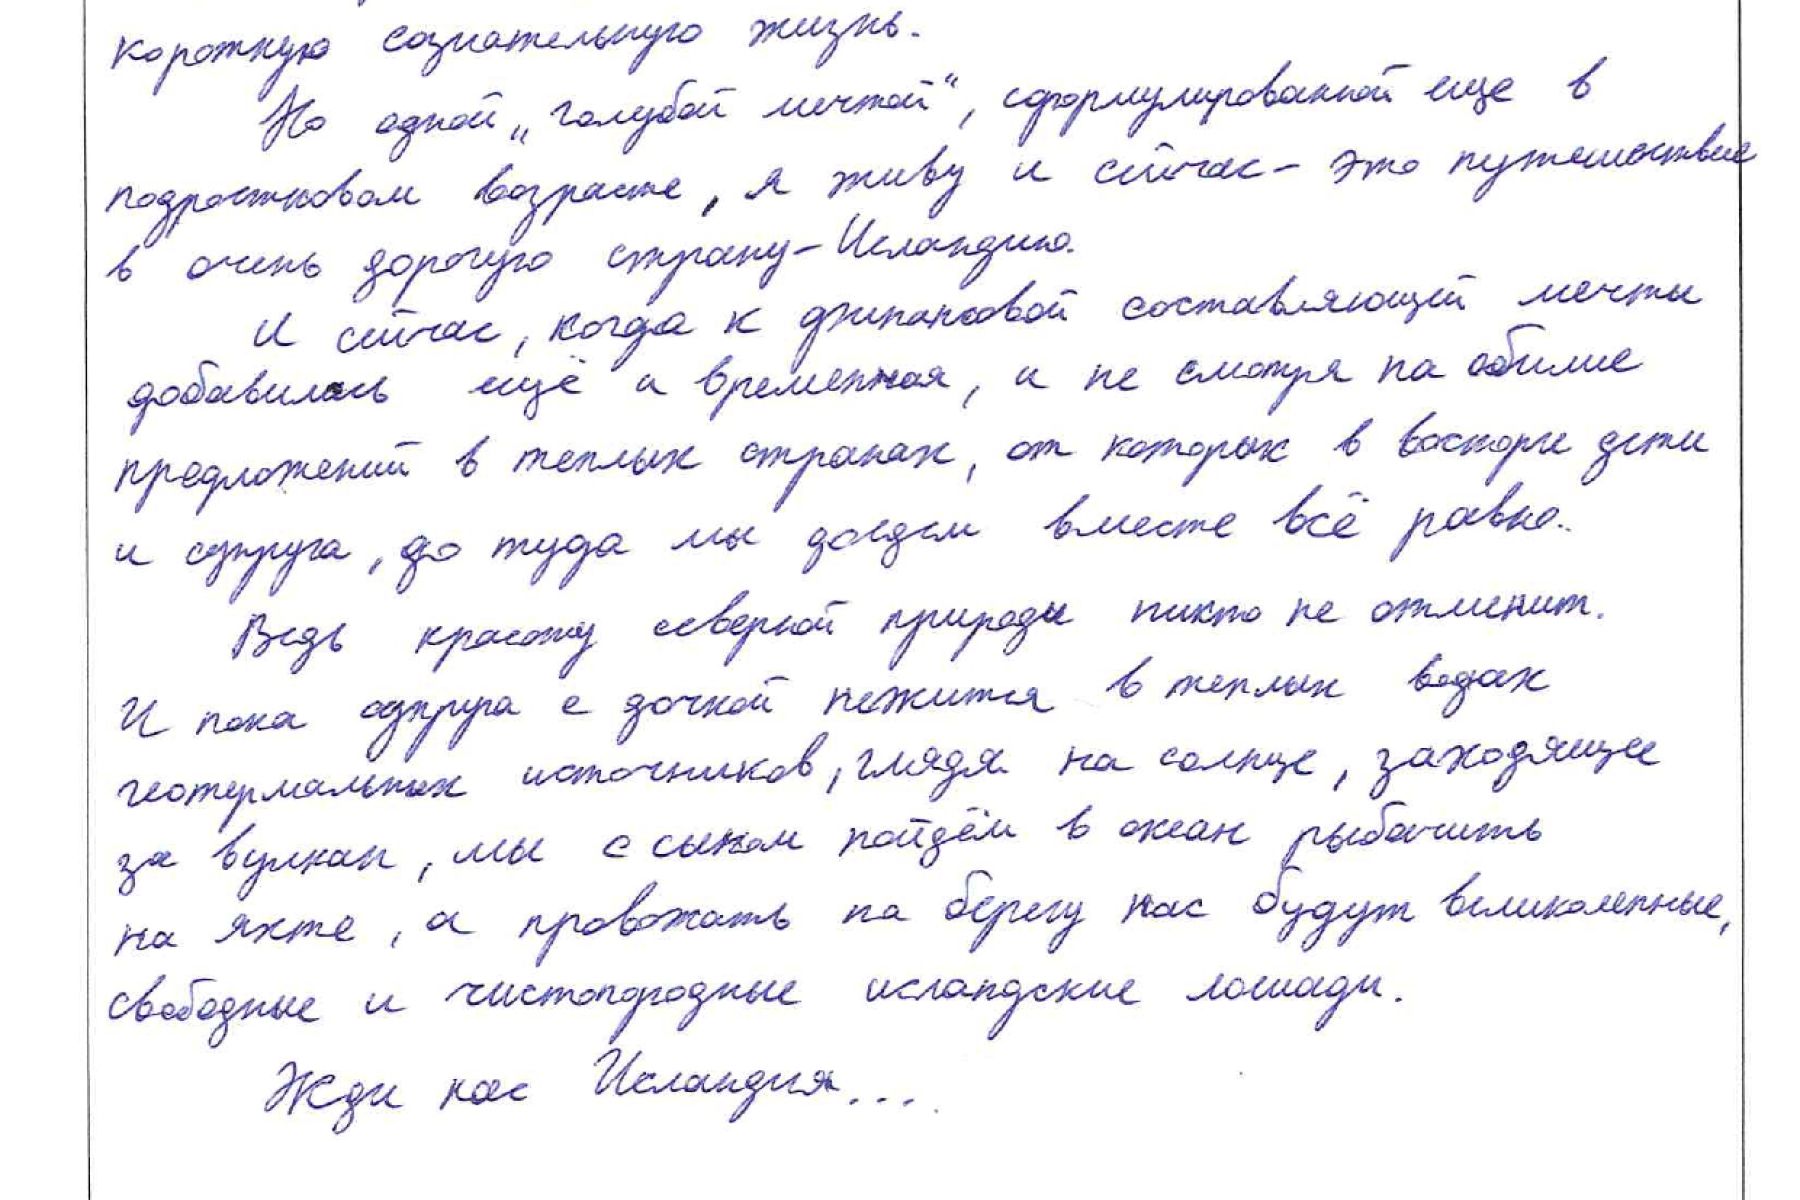 короткую сознательную жизнь.
Но одной „голубой мечтой“, сформулированной еще в
подростковом возрасте, я живу и сейчас – это путешествие
в очень дорогую страну – Исландию.
И сейчас, когда к финансовой составляющей мечты
добавилась ещё и временная, и не смотря на обилие
предложений в теплых странах, от которых в восторге дети
и супруга, до туда мы доедем вместе всё равно.
Ведь красоту северной природы никто не отменит.
И пока супруга с дочкой нежится в теплых водах
геотермальных источников, глядя на солнце, заходящее
за вулкан, мы с сыном пойдём в океан рыбачить
на яхте, а провожать на берегу нас будут великолепные,
свободные и чистопородные исландские лошади.
Жди нас Исландия...